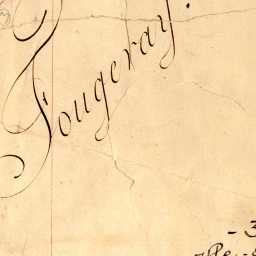 Fougeray.
- 3